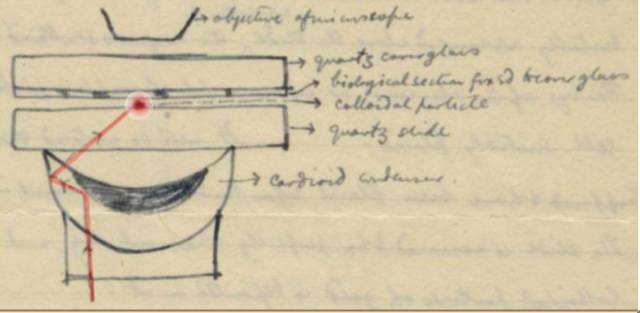 objective of microscope
quartz coverglass
biological section fixed to coverglass
colloidal particle
quartz slide
cardioid condenser.